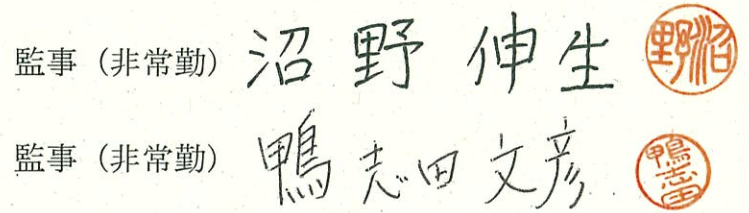 監事（非常勤） 沼野 伸生 沼野
監事（非常勤） 鴨志田 文彦 鴨志田